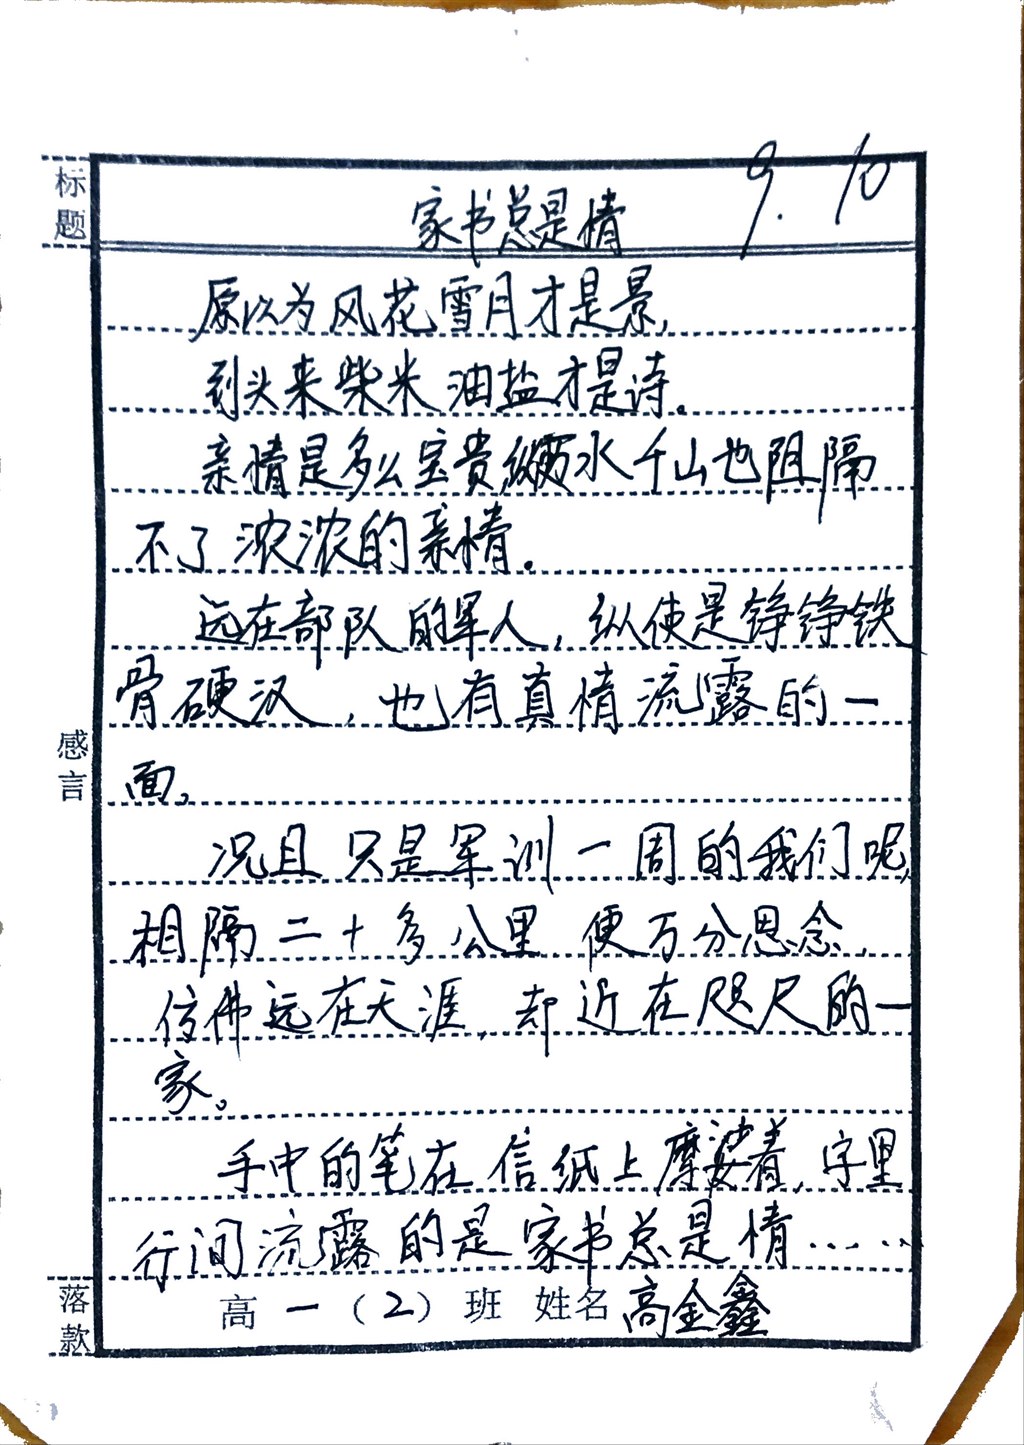 标题
家书总是情
9.10
原以为风花雪月才是景,
到头来柴米油盐才是诗。
亲情是多么宝贵纵万水千山也阻隔
不了浓浓的亲情。
远在部队的军人,纵使是铮铮铁
骨硬汉,也有真情流露的一
面。
感言
况且只是军训一周的我们呢,
相隔二十多公里便万分思念,
仿佛远在天涯,却近在咫尺的一
家。
手中的笔在信纸上摩娑着,字里
行间流露的是家书总是情……
落款
高一(2)班 姓名 高金鑫